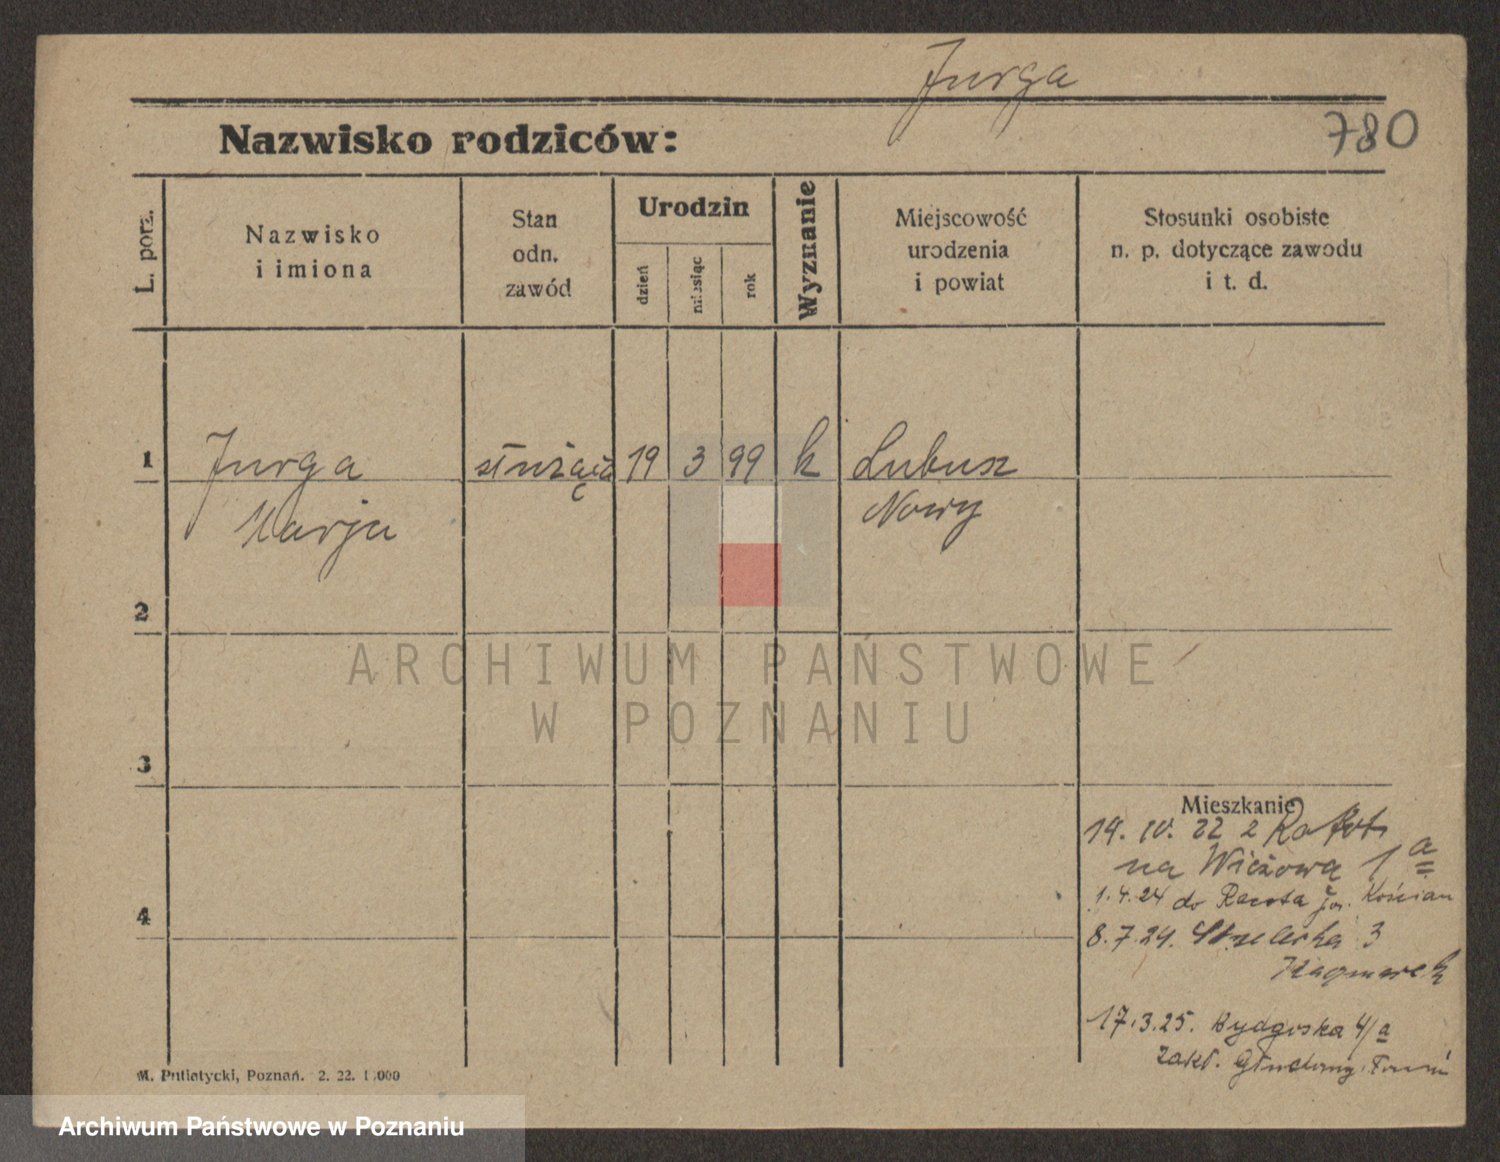 Jurga
780
Nazwisko rodziców:
L. porz.
Nazwisko
i imiona
Stan
odn.
zawód
Urodzin
dzień
miesiąc
rok
Wyznanie
Miejscowość
urodzenia
i powiat
Stosunki osobiste
n. p. dotyczące zawodu
i t. d.
1
Jurga
Marja
służąca
19
3
99
k
Lubusz
Nowy
2
3
4
Mieszkanie
19. IV. 22 z
na Wieżową 1 a
1.4.24 do Racota Kościan
8.7.24. Strzelecka 3
17.3.25. Bydgoska 4/a
Zakł.
M. Putiatycki, Poznań. 2. 22.
ARCHIWUM PAŃSTWOWE
W POZNANIU
Archiwum Państwowe w Poznaniu